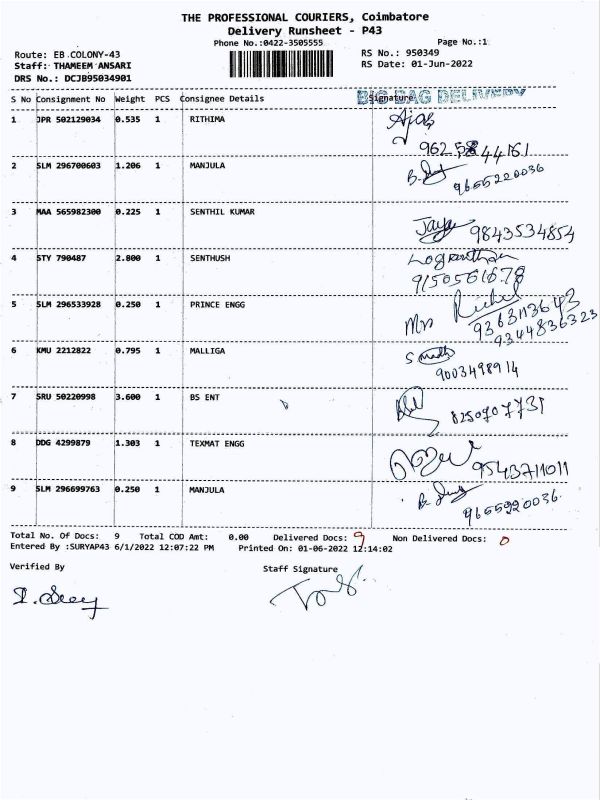 THE PROFESSIONAL COURIERS, Coimbatore
Delivery Runsheet - P43
Phone No.:0422-3505555
Page No.:1
Route: EB COLONY-43
RS No.: 950349
Staff: THAMEEM ANSARI
RS Date: 01-Jun-2022
DRS No.: DCJB95034901
BIG BAG DELIVERY
S No Consignment No Weight PCS Consignee Details Signature
1 JPR 502129034 0.535 1 RITHIMA
2 SLM 296700603 1.206 1 MANJULA
9655220036
3 MAA 565982300 0.225 1 SENTHIL KUMAR
Jaya 9843534854
4 STY 790487 2.800 1 SENTHUSH
9150561678
5 SLM 296533928 0.250 1 PRINCE ENGG
9363113643
9344836323
6 KMU 2212822 0.795 1 MALLIGA
9003498914
7 SRU 50220998 3.600 1 BS ENT
8250707731
8 DDG 4299879 1.303 1 TEXMAT ENGG
9543711011
9 SLM 296699763 0.250 1 MANJULA
9655220036
Total No. Of Docs: 9 Total COD Amt: 0.00 Delivered Docs: 9 Non Delivered Docs: 0
Entered By :SURYAP43 6/1/2022 12:07:22 PM Printed On: 01-06-2022 12:14:02
Verified By Staff Signature